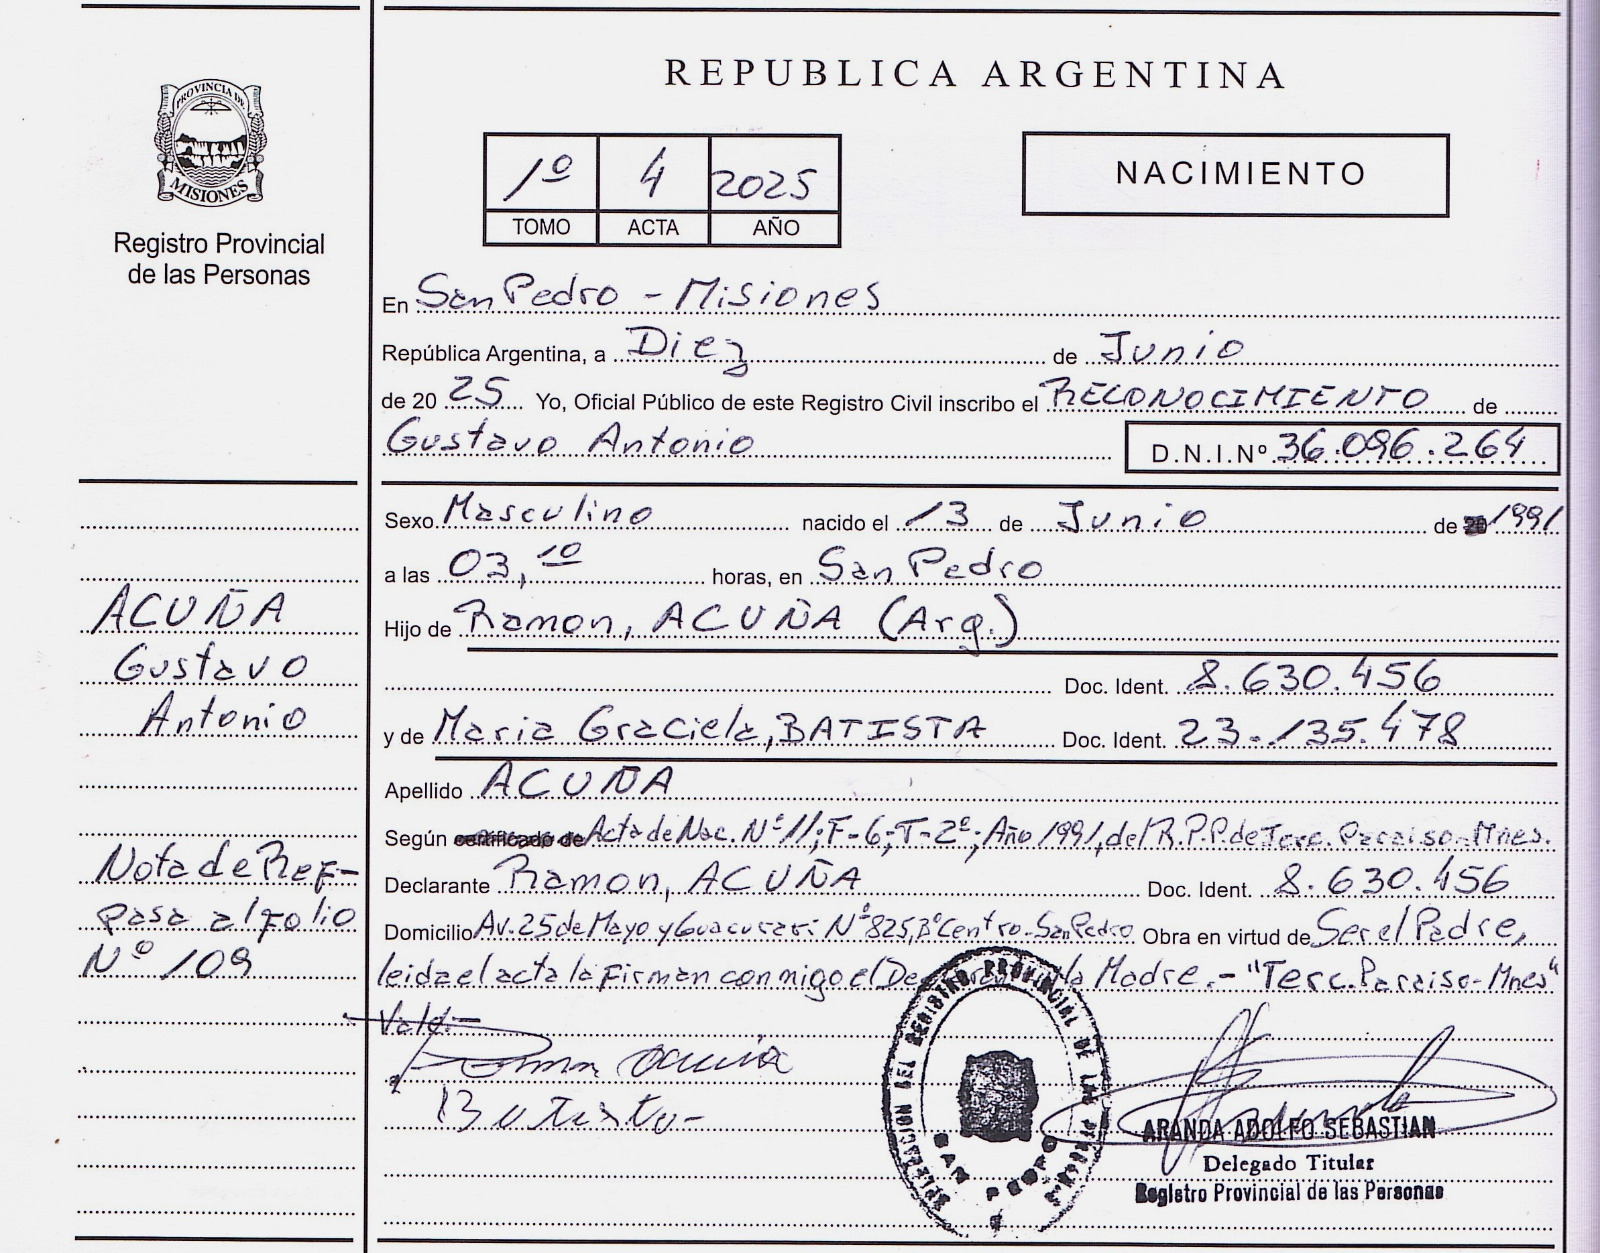 PROVINCIA DE
MISIONES
Registro Provincial
de las Personas
REPUBLICA ARGENTINA
1º 4 2025
TOMO ACTA AÑO
NACIMIENTO
En San Pedro - Misiones
República Argentina, a Diez de Junio
de 20 25 Yo, Oficial Público de este Registro Civil inscribo el RECONOCIMIENTO de
Gustavo Antonio D.N.I.Nº 36.096.264
Sexo Masculino nacido el 13 de Junio de 20 1991
a las 03,10 horas, en San Pedro
Hijo de Ramon, ACUÑA (Arg.)
Doc. Ident. 8.630.456
y de Maria Graciela, BATISTA Doc. Ident. 23.135.478
Apellido ACUÑA
Según certificado de Acta de Nac. Nº 11; F-6; T-2º; Año 1991, del R.P.P. de Terc. Paraiso-Mnes.
Declarante Ramon, ACUÑA Doc. Ident. 8.630.456
Domicilio Av. 25 de Mayo y Guacurari Nº 825, Bº Centro-San Pedro Obra en virtud de Ser el Padre,
leida el acta la Firman conmigo el la Madre.- "Terc. Paraiso-Mnes"
Vale.-
Ramon Acuña
Batista
ACUÑA
Gustavo
Antonio
Nota de Ref-
pasa al Folio
Nº 109
DELEGACION DEL REGISTRO PROVINCIAL DE LAS PERSONAS
SAN PEDRO
ARANDA ADOLFO SEBASTIAN
Delegado Titular
Registro Provincial de las Personas